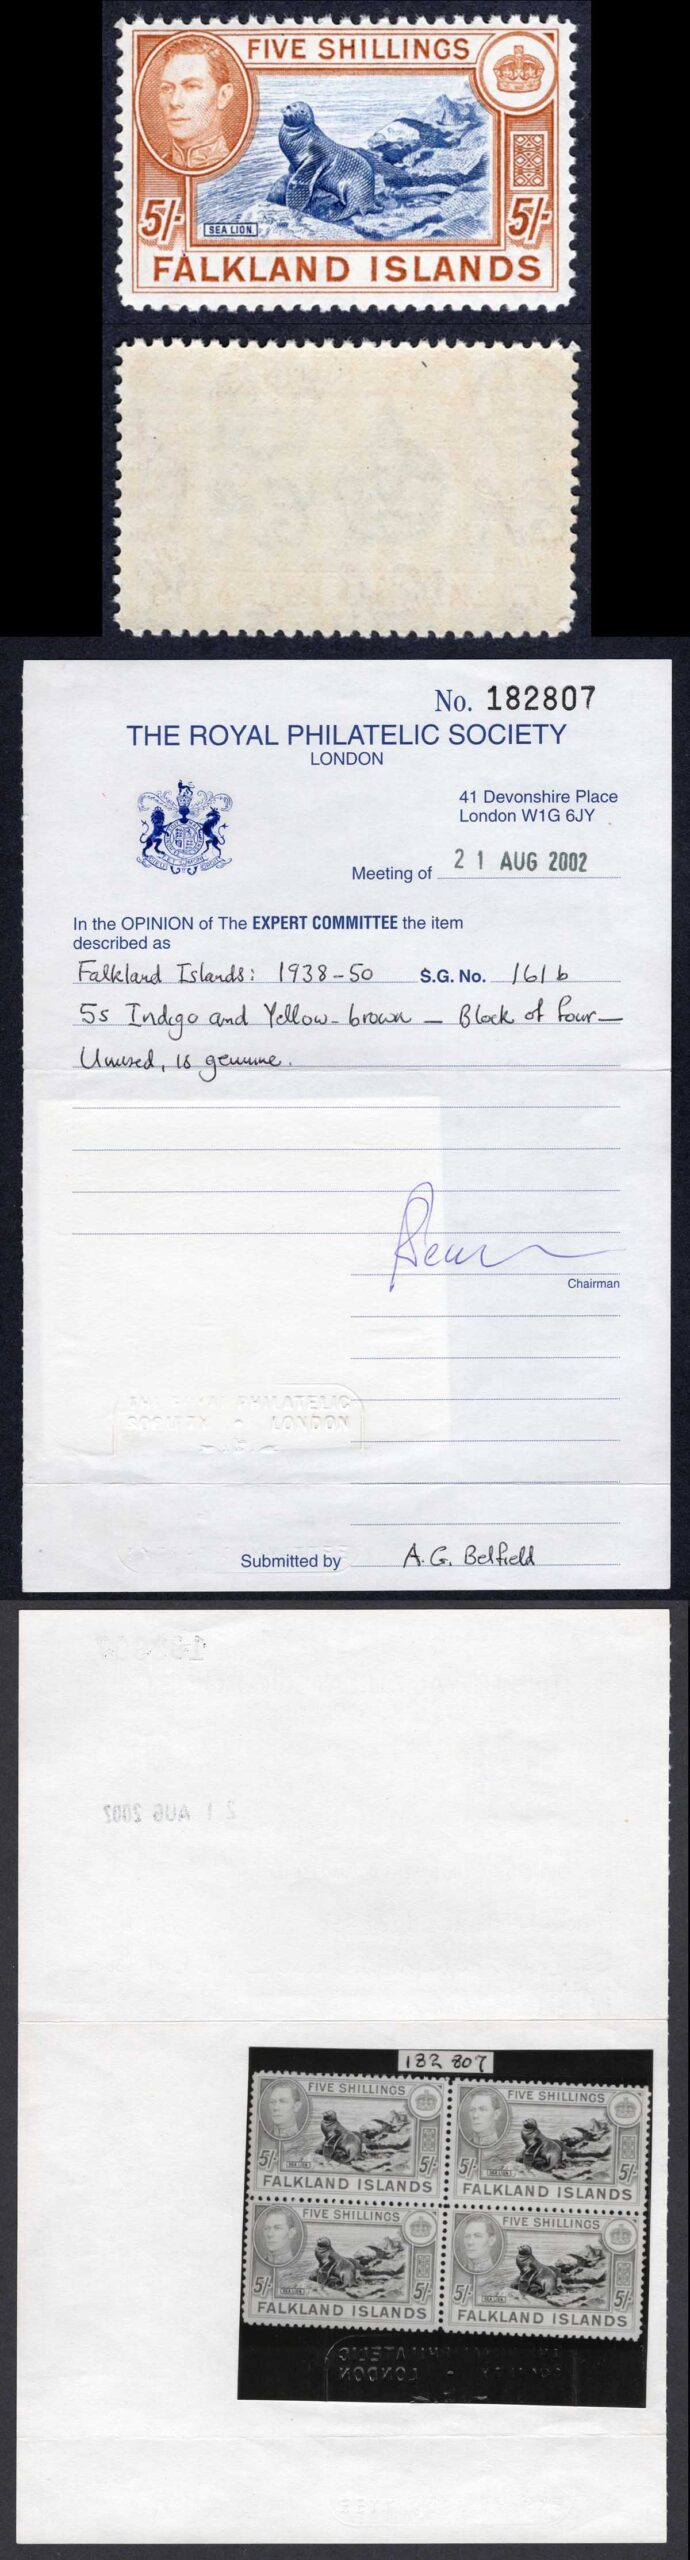 FIVE SHILLINGS
5/- 5/-
SEA LION.
FALKLAND ISLANDS
No. 182807
THE ROYAL PHILATELIC SOCIETY
LONDON
41 Devonshire Place
London W1G 6JY
Meeting of 21 AUG 2002
In the OPINION of The EXPERT COMMITTEE the item
described as
Falkland Islands: 1938-50 S.G. No. 161b
5s Indigo and Yellow-brown — Block of four —
Unused, is genuine.
Chairman
THE ROYAL PHILATELIC
SOCIETY LONDON
Submitted by A.G. Belfield
21 AUG 2002
182 807
FIVE SHILLINGS FIVE SHILLINGS
5/- 5/- 5/- 5/-
SEA LION. SEA LION.
FALKLAND ISLANDS FALKLAND ISLANDS
FIVE SHILLINGS FIVE SHILLINGS
5/- 5/- 5/- 5/-
SEA LION. SEA LION.
FALKLAND ISLANDS FALKLAND ISLANDS